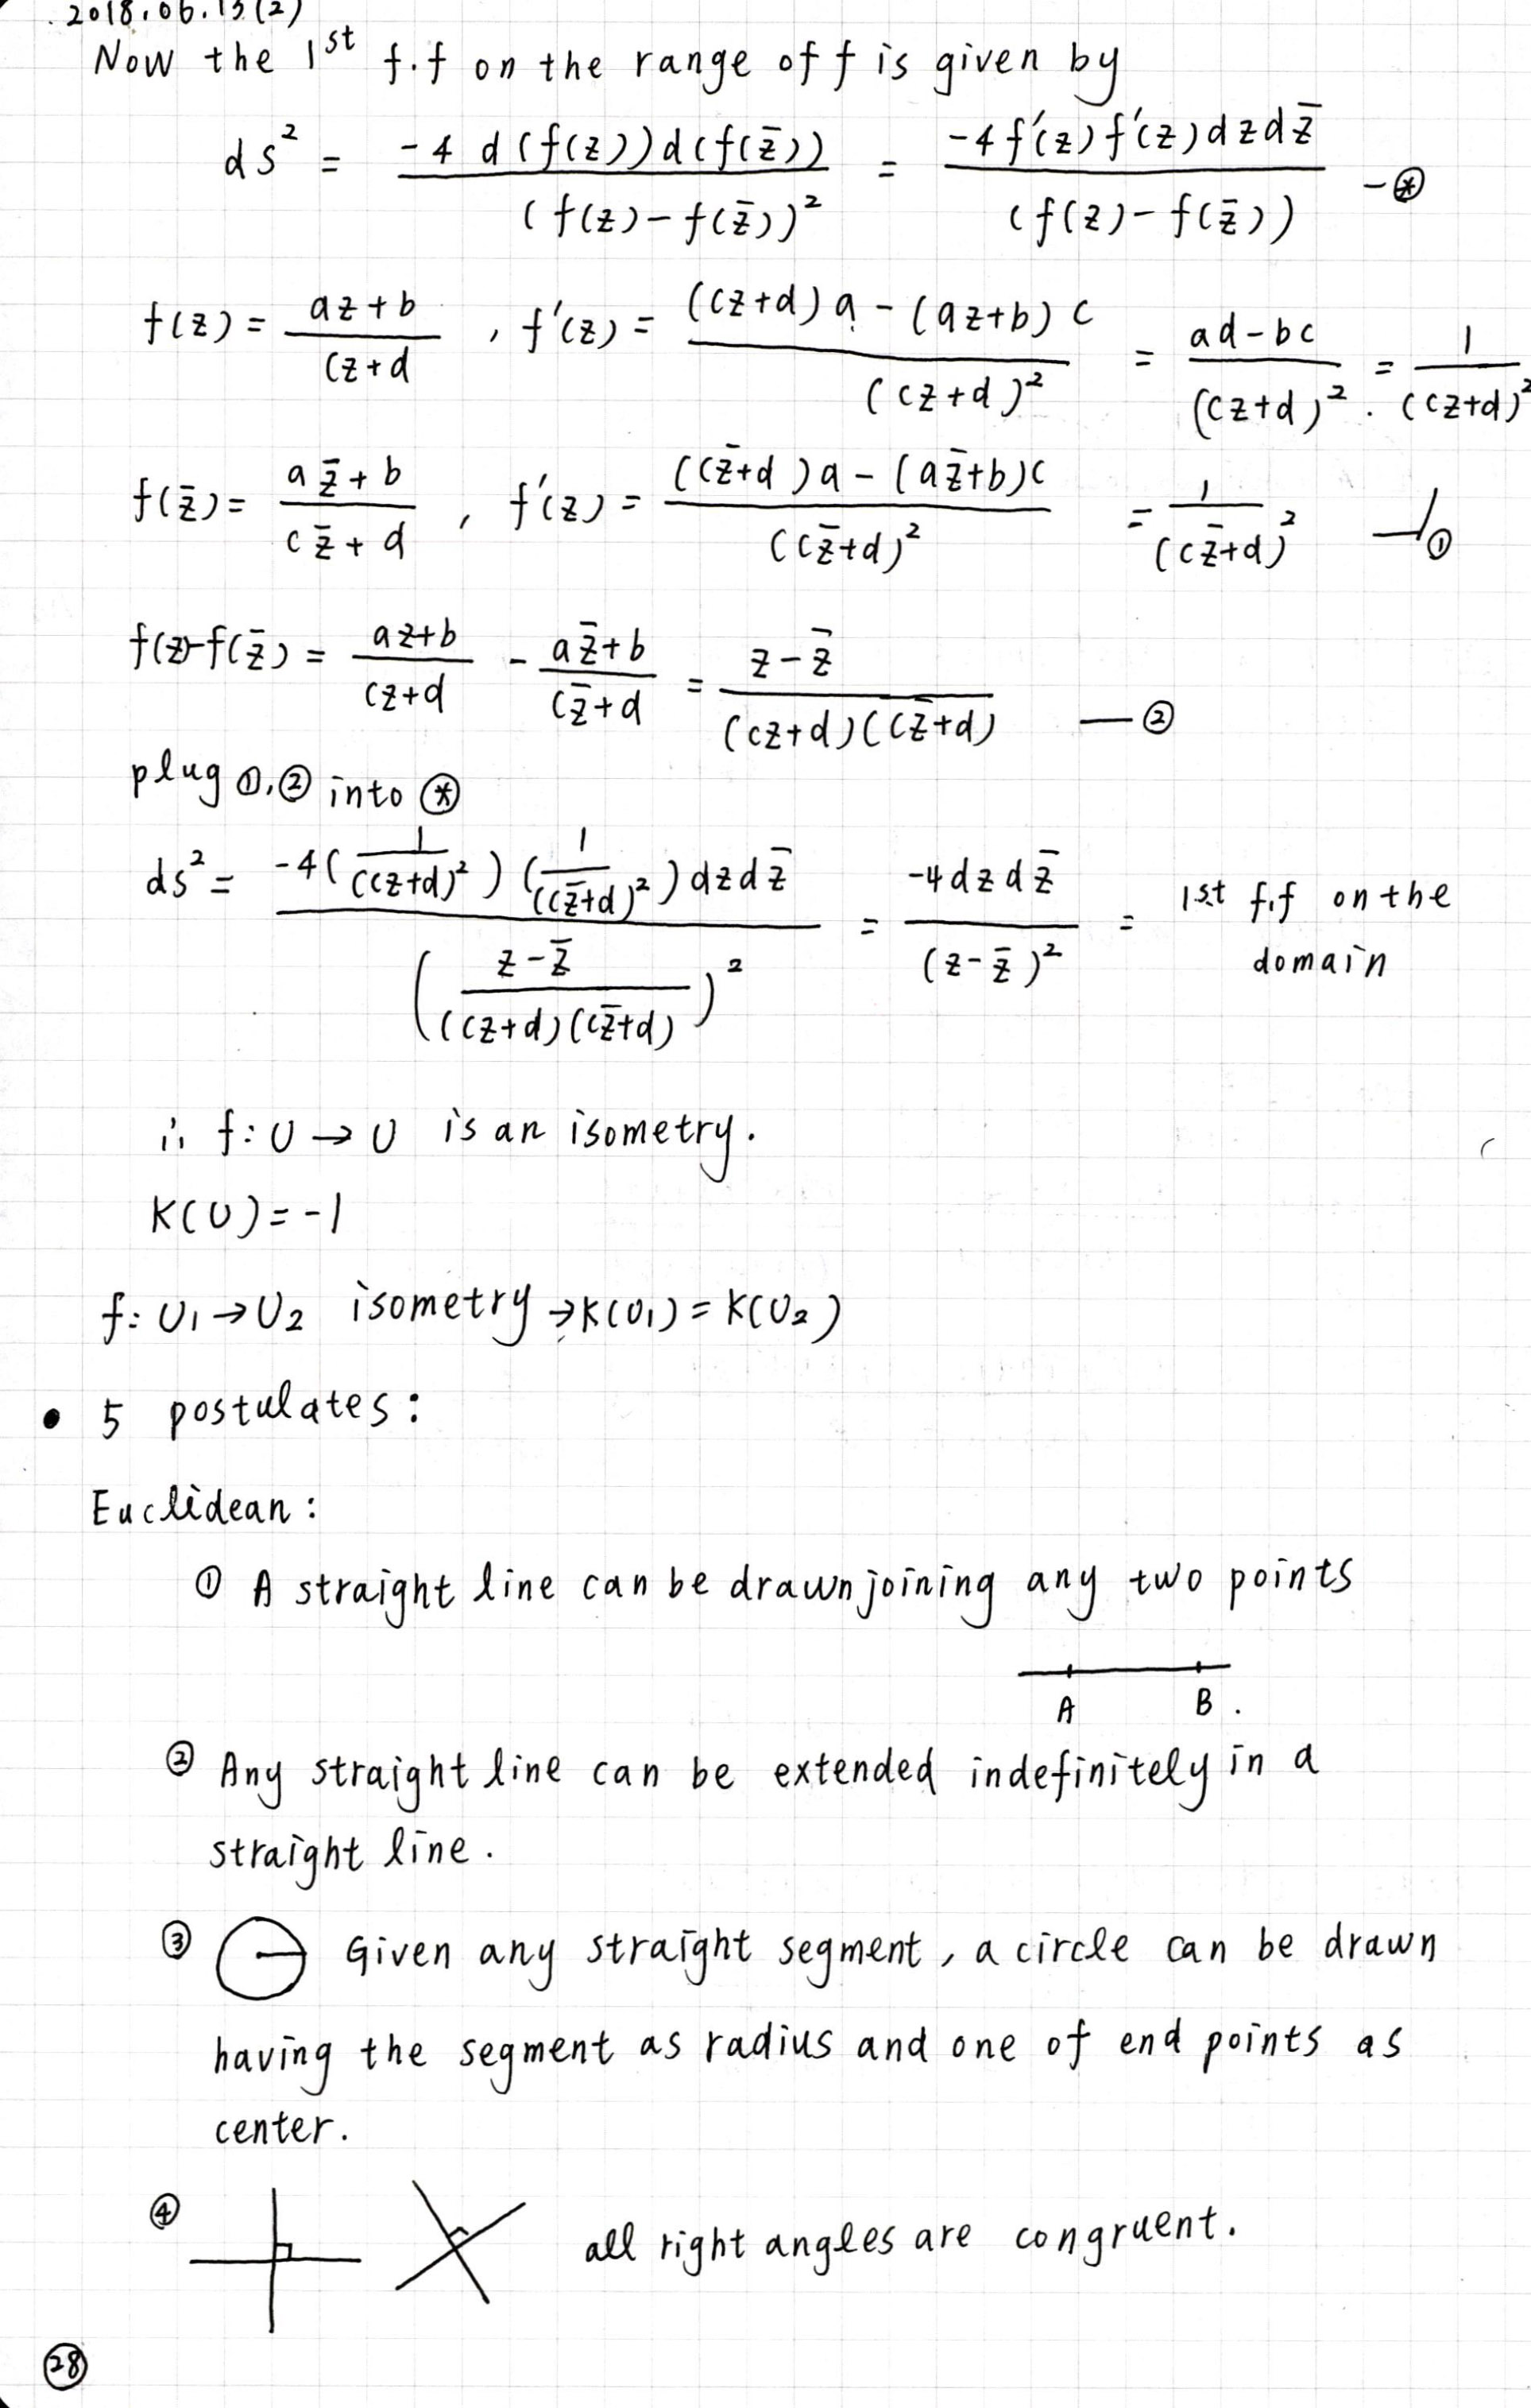 2018.06.15(2)
Now the 1st f.f on the range of f is given by
ds² = -4 d(f(z))d(f(z̄)) / (f(z)-f(z̄))² = -4f'(z)f'(z)dzdz̄ / (f(z)-f(z̄)) -⊛
f(z) = az+b / cz+d , f'(z) = ((cz+d)a-(az+b)c / (cz+d)² = ad-bc / (cz+d)² . = 1 / (cz+d)²
f(z̄) = az̄+b / cz̄+d , f'(z) = ((cz̄+d)a-(az̄+b)c / (cz̄+d)² = 1 / (cz̄+d)² —①
f(z)-f(z̄) = az+b / cz+d - az̄+b / cz̄+d = z-z̄ / (cz+d)(cz̄+d) —②
plug ①,② into ⊛
ds² = -4(1 / (cz+d)²)(1 / (cz̄+d)²)dzdz̄ / (z-z̄ / (cz+d)(cz̄+d))² = -4dzdz̄ / (z-z̄)² = 1st f.f on the domain
∴ f: U → U is an isometry.
K(U) = -1
f: U₁ → U₂ isometry → K(U₁) = K(U₂)
• 5 postulates:
Euclidean:
① A straight line can be drawn joining any two points
A B .
② Any straight line can be extended indefinitely in a
straight line.
③ Given any straight segment, a circle can be drawn
having the segment as radius and one of end points as
center.
④ all right angles are congruent.
28